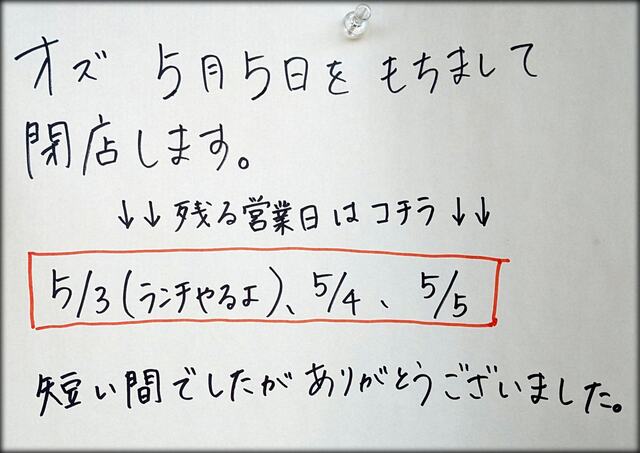 オズ 5月5日を もちまして
閉店します。
↓↓残る営業日はコチラ↓↓
5/3(ランチやるよ)、5/4、5/5
短い間でしたが ありがとうございました。